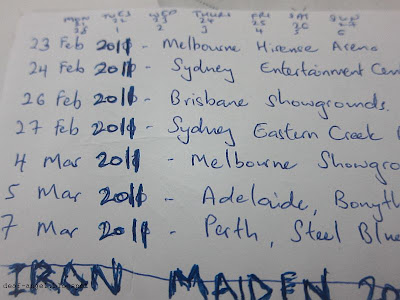 MON TUES WED THURS FRI SAT SUN
21 22 23 24 25 26 27
28 1 2 3 4 5 6
23 Feb 2011 - Melbourne Hisense Arena
24 Feb 2011 - Sydney Entertainment Cen
26 Feb 2011 - Brisbane Showgrounds.
27 Feb 2011 - Sydney Eastern Creek
4 Mar 2011 - Melbourne Showgro
5 Mar 2011 - Adelaide, Bonyth
7 Mar 2011 - Perth, Steel Blue
IRON MAIDEN 20